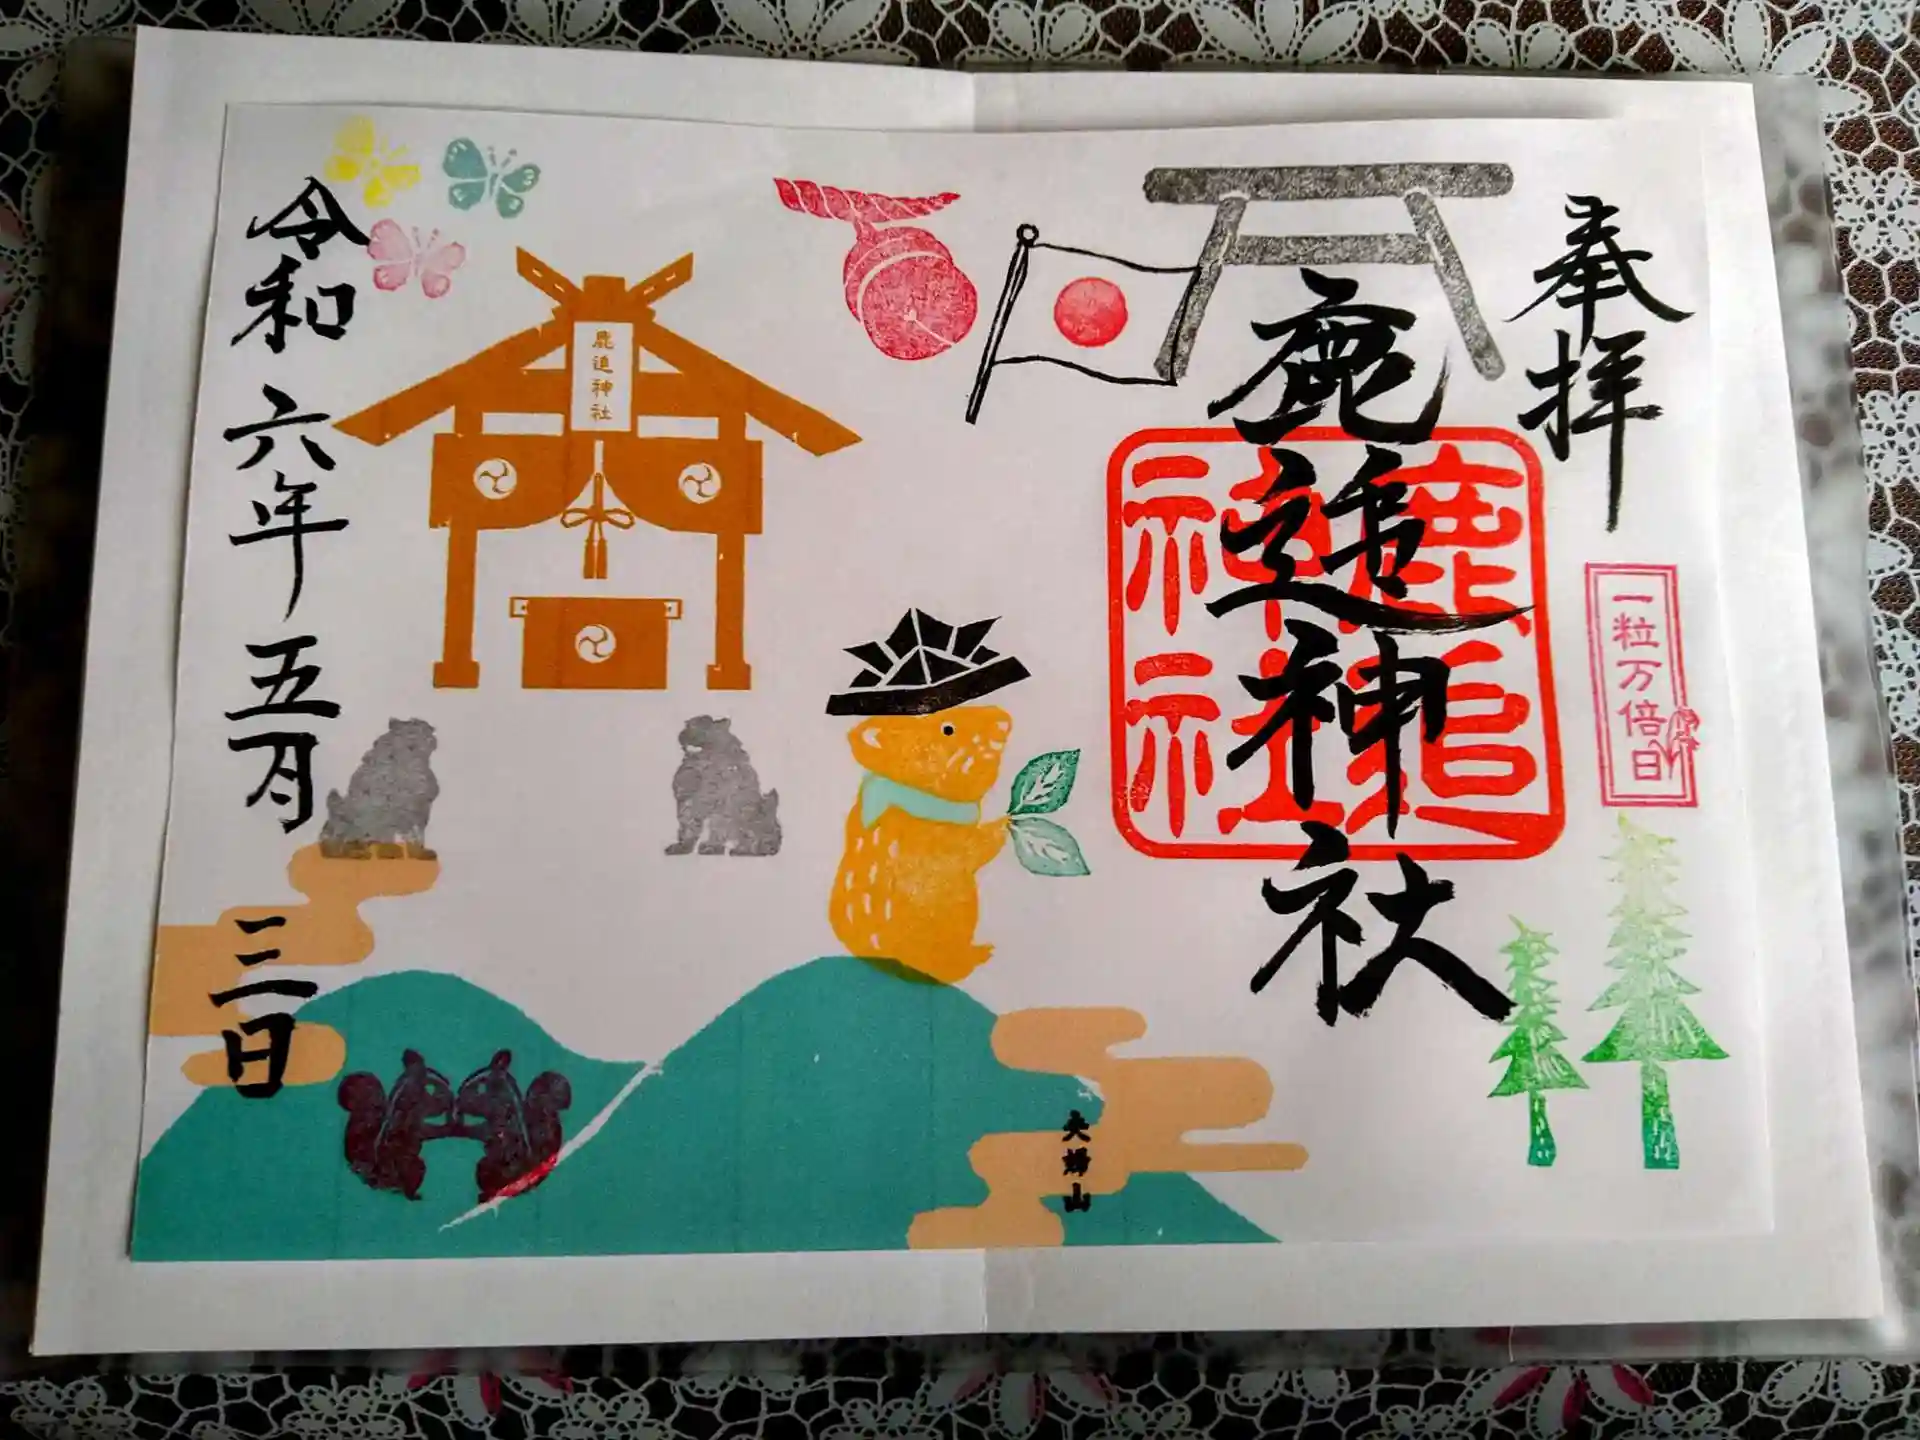 奉拝
一粒万倍日
鹿追神社
鹿追神社
鹿追神社
夫婦山
令和六年五月三日